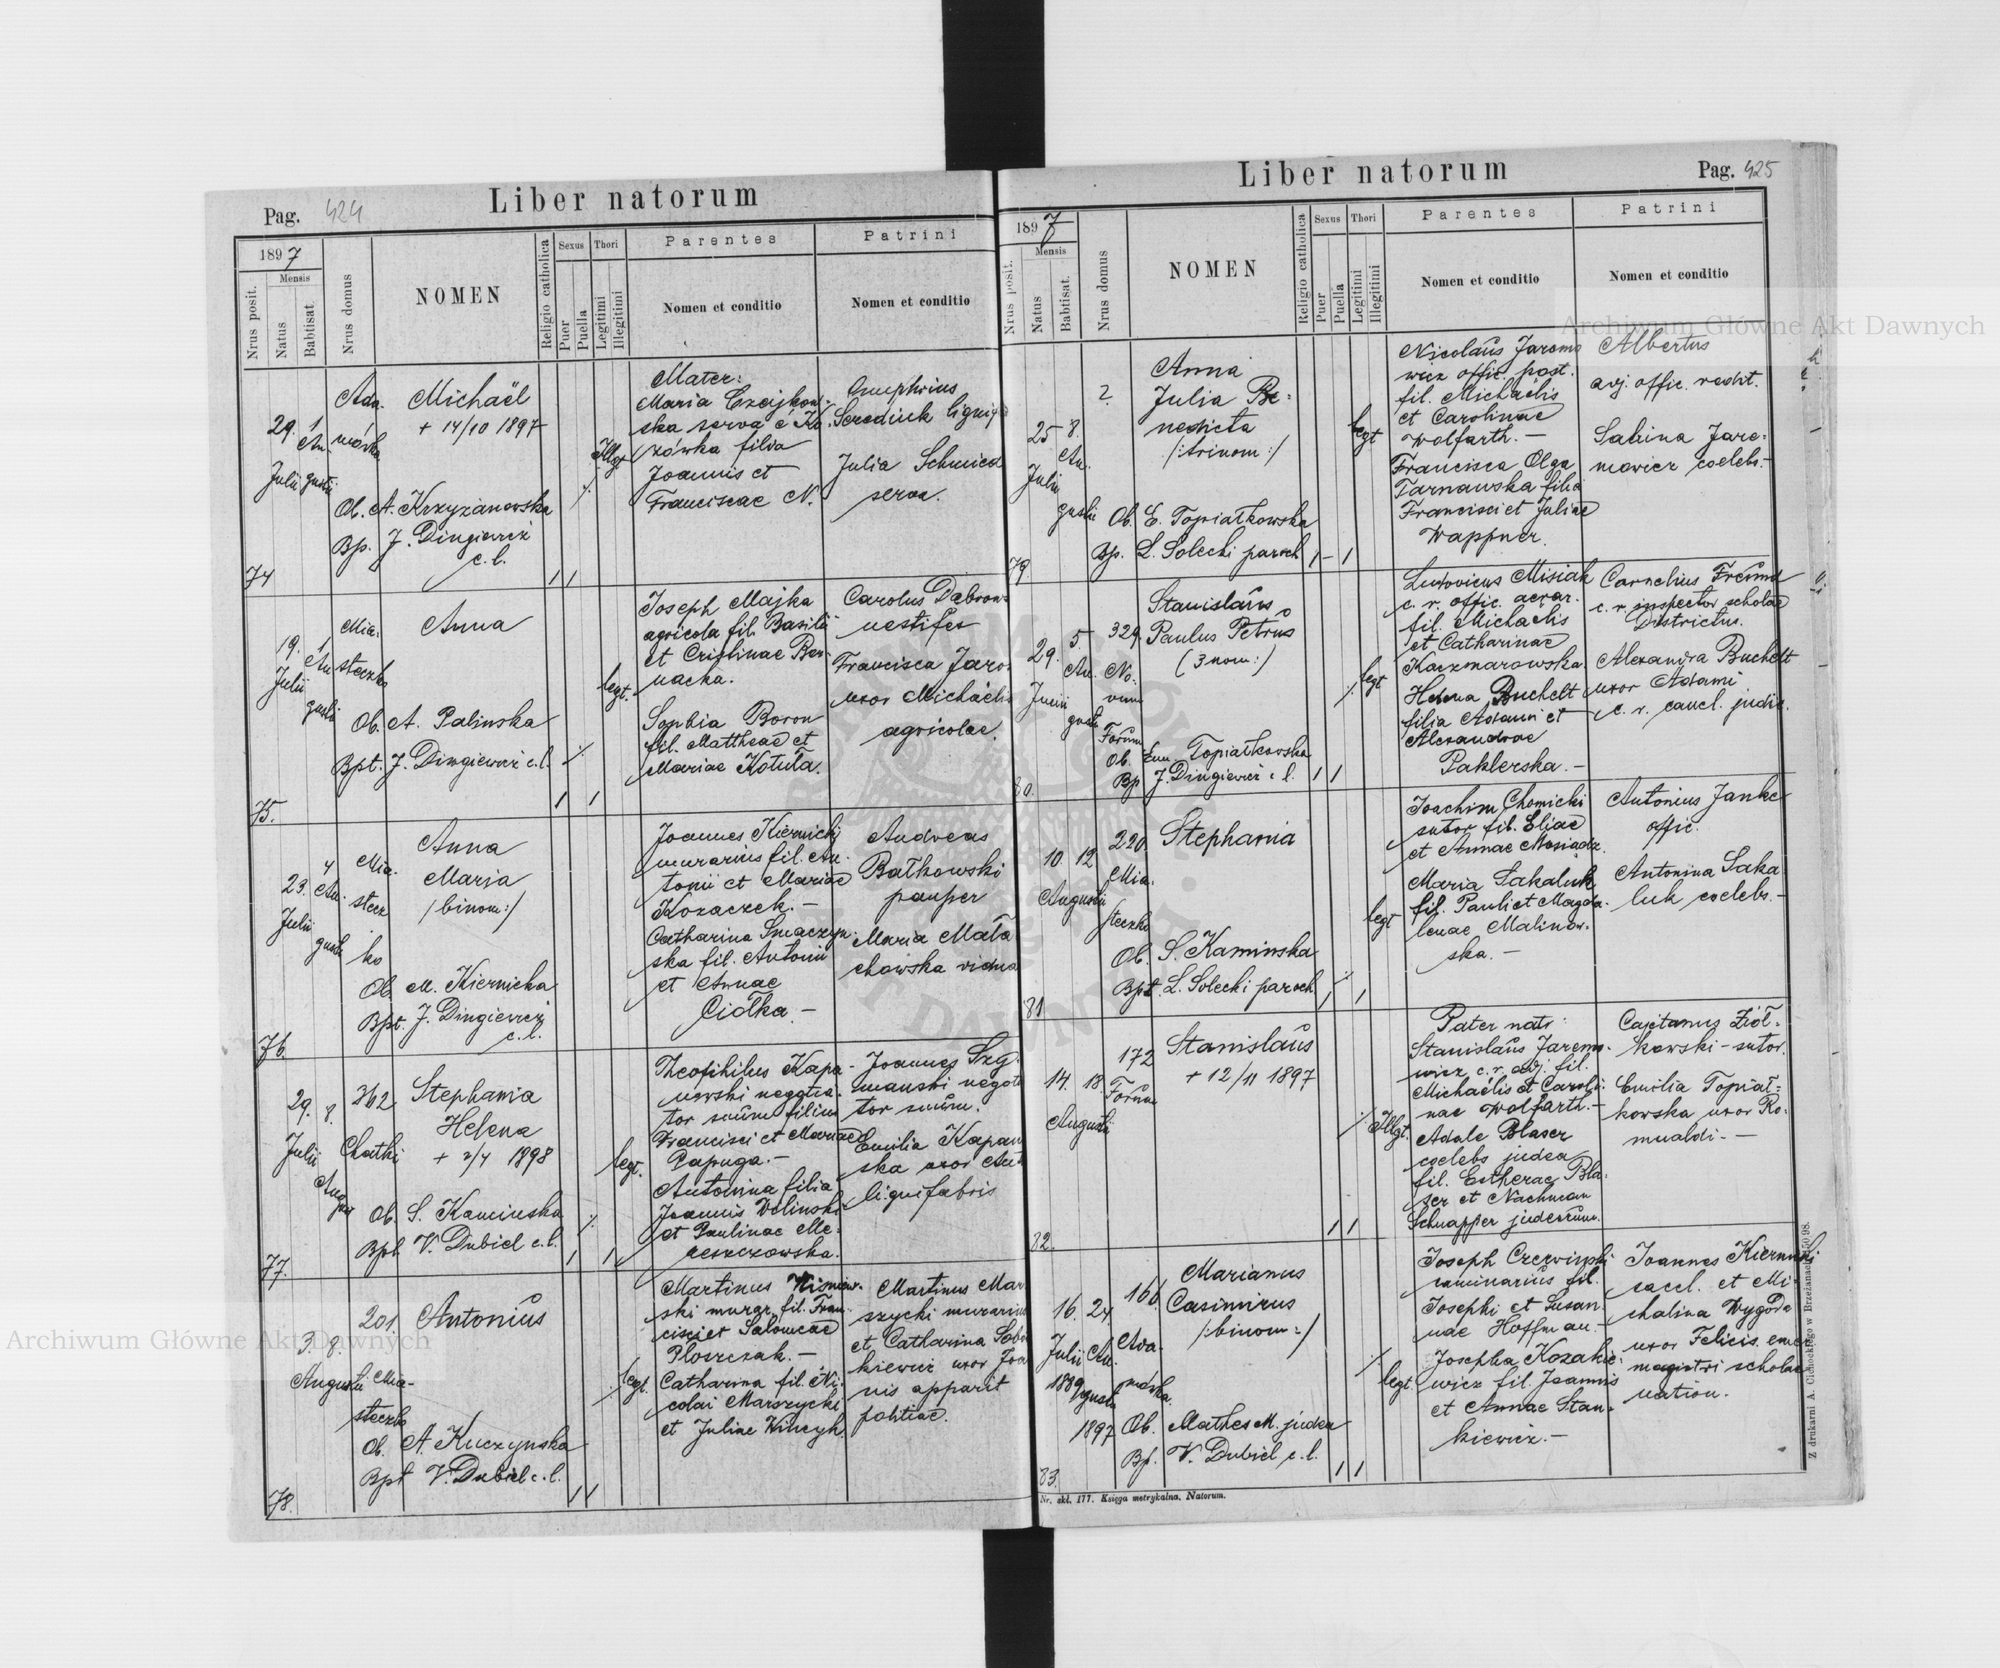 Liber natorum
Pag. 424
1897
Mensis
Nrus posit.
Natus
Babtisat
Nrus domus
NOMEN
Religio catholica
Sexus
Puer
Puella
Thori
Legitimi
Illegitimi
Parentes
Nomen et conditio
Patrini
Nomen et conditio
74
29.
Julii
1
Au-
gusti
Ada-
mówka
Michaël
+ 14/10 1897
Ob. A. Krzyżanowska
Bp. J. Dingiewicz
c. l.
Illgt.
Mater:
Maria Czajkow-
ska serva e Ko-
zówka filia
Joannis et
Franciscae N.
Onuphrius
Serediuk
Julia Schmied
serva.
75.
19.
Julii
1
Au-
gusti
Mia-
steczko
Anna
Ob. A. Palinska
Bpt. J. Dingiewicz c. l.
legt.
Joseph Majka
agricola fil. Basilii
et Cristinae Ber-
nacka.
Sophia Boron
fil. Mattheae et
Mariae Kotuła.
Carolus Dąbrow-
vestifex
Francisca
uxor Michaelis
agricolae.
76.
23.
Julii
4
Au-
gusti
Mia-
stecz
ko
Anna
Maria
/binom:/
Ob. M. Kiernicka
Bpt. J. Dingiewicz
c. l.
Joannes Kiernicki
murarius fil. An-
tonii et Mariae
Kozaczek.-
Catharina
ska fil. Antonii
et Annae
Ciółka.-
Andreas
Bałkowski
pauper
Maria Mała
chowska vidua
77.
29.
Julii
8.
August
362
Chatki
Stephania
Helena
+ 2/4 1898
Ob. S. Kaminska
Bpt. V. Dubiel c. l.
legt.
Theofihilus Kapa-
nowski negotia-
tor suum filius
Francisci et Mariae
Papuga.-
Antonina filia
Joannis Wolinski
et Paulinae Me-
reszczowska.
Joannes Szy-
manski negotia
tor suum.
Emilia Kapan
ska uxor Ant
lignifabris
78.
3.
8.
Augusti
201
Mia-
steczko
Antonius
Ob. A. Kuczynska
Bpt V. Dubiel c. l.
legt.
Martinus Wisniow-
ski murar. fil. Fran-
cisci et Salomeae
Płoszczak.-
Catharina fil. Ni-
colai Marszycki
et Juliae
Martinus Mar
szycki murarius
et Catharina Sob
kiewicz uxor Joa
nis apparit
politiae.
Liber natorum
Pag. 425
1897
Mensis
Nrus posit.
Natus
Babtisat.
Nrus domus
NOMEN
Religio catholica
Sexus
Puer
Puella
Thori
Legitimi
Illegitimi
Parentes
Nomen et conditio
Patrini
Nomen et conditio
79
25
Julii
8.
Au-
gusti
?
Anna
Julia Be-
nedicta
/:trinom:/
Ob. E. Topiałkowska
Bp. L. Solecki paroch
legt
Nicolaus Jaremo
wicz offic. post.
fil. Michaelis
et Carolinae
Wolfarth.-
Francisca Olga
Tarnawska filia
Francisci et Juliae
Wappner.
Albertus
adj. offic. vectit.
Sabina Jare-
mowicz coelebs.-
80.
29.
Junii
5.
Au-
gusti
329.
No-
vum
Forum
Stanislaus
Paulus Petrus
(3 nom:)
Ob. Em. Topiałkowska
Bp J. Dingiewicz c. l.
legt
Ludovicus Misiak
c. r. offic. aerar.
fil. Michaelis
et Catharinae
Kaczmarowska.
Helena Buchelt
filia Adami et
Alexandrae
Paklerska.-
Cornelius Freund
c. r. inspector scholae
Districtus.
Alexandra Buchelt
uxor Adami
c. r. cancl. judic.
81
10.
12.
Augusti
220
Mia-
steczko
Stephania
Ob. S. Kaminska
Bpt. L. Solecki paroch
legt
Joachim Chomicki
sutor fil. Eliae
et Annae Mosiądz.
Maria Sakaluk
fil. Pauli et Magda-
lenae Malinow-
ska.-
Antonius Janke
offic.
Antonina Saka
luk coelebs.-
82.
14.
18.
Augusti
172
Forum
Stanislaus
+ 12/11 1897
Illgt.
Pater nati:
Stanislaus Jaremo-
wicz c. r. adj. fil.
Michaelis et Caroli-
nae Wolfarth.-
Adale Blaser
coelebs judea
fil. Estherae Bla-
ser et Nachman
Schnapper judeorum.
Cajetanus Ziół-
kowski - sutor.
Emilia Topiał-
kowska uxor Ro-
mualdi.-
83.
16.
Julii
1889
24.
Au-
gusti
1897
166
Ada-
mówka
Marianus
Casimirus
/:binom:/
Ob. Mathes M. judea
Bp. V. Dubiel c. l.
legt.
Joseph Czerwinski
caminarius fil.
Josephi et Susan-
nae Hoffman.-
Josepha Kozakie-
wicz fil. Joannis
et Annae Stan-
kiewicz.-
Joannes Kiernicki
sacel. et Mi-
chalina Wygoda
uxor Felicis emer
magistri scholae
nation.
Nr. skł. 177. Księga metrykalna. Natorum.
Z drukarni A. Cichockiego w Brzeżanach
Archiwum Główne Akt Dawnych
Archiwum Główne Akt Dawnych